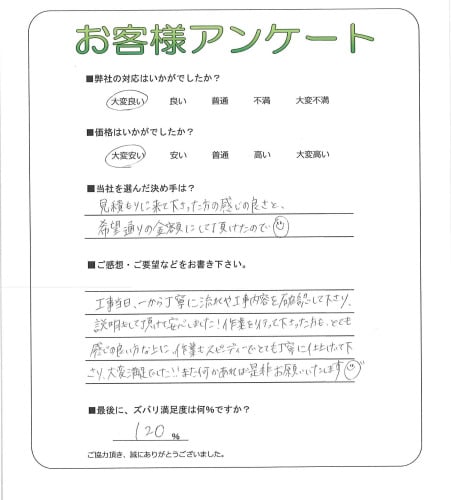 お客様アンケート
■弊社の対応はいかがでしたか？
大変良い 良い 普通 不満 大変不満
■価格はいかがでしたか？
大変安い 安い 普通 高い 大変高い
■当社を選んだ決め手は？
見積もりに来て下さった方の感じの良さと、
希望通りの金額にして頂けたので
■ご感想・ご要望などをお書き下さい。
工事当日、一から丁寧に流れや工事内容を確認して下さり、
説明をして頂けて安心しました！作業を行って下さった方も、とても
感じの良い方な上に、作業もスピーディーでとても丁寧に仕上げて下
さり、大変満足でした!!また何かあれば是非お願いいたします
■最後に、ズバリ満足度は何%ですか？
120 %
ご協力頂き、誠にありがとうございました。